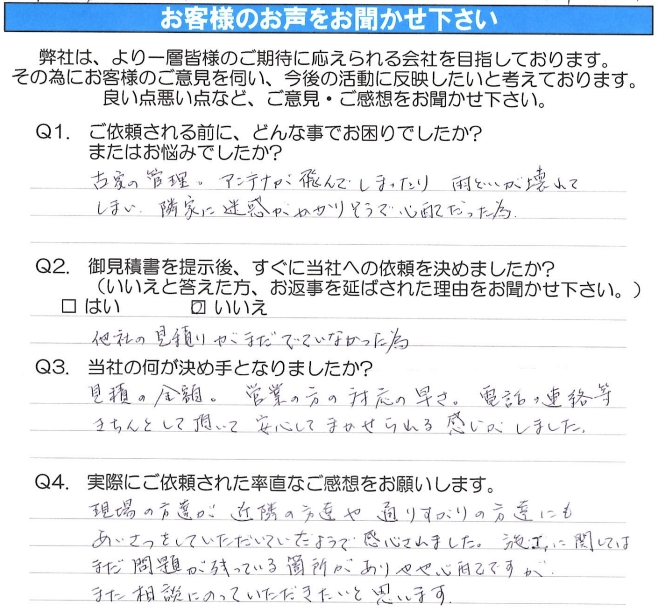 お客様のお声をお聞かせ下さい
弊社は、より一層皆様のご期待に応えられる会社を目指しております。
その為にお客様のご意見を伺い、今後の活動に反映したいと考えております。
良い点悪い点など、ご意見・ご感想をお聞かせ下さい。
Q1. ご依頼される前に、どんな事でお困りでしたか?
またはお悩みでしたか?
古家の管理。アンテナが飛んでしまったり 雨といが壊れて
しまい、隣家に迷惑がかかりそうで心配だった為。
Q2. 御見積書を提示後、すぐに当社への依頼を決めましたか?
(いいえと答えた方、お返事を延ばされた理由をお聞かせ下さい。)
□ はい ☑ いいえ
他社の見積りがまだでていなかった為
Q3. 当社の何が決め手となりましたか?
見積の金額。営業の方の対応の早さ。電話の連絡等
きちんとして頂いて安心してまかせられる感じがしました。
Q4. 実際にご依頼された率直なご感想をお願いします。
現場の方達が近隣の方達や通りすがりの方達にも
あいさつをしていただいていたようで感心されました。施工に関しては
まだ問題が残っている箇所がありやや心配ですが
また相談にのっていただきたいと思います。